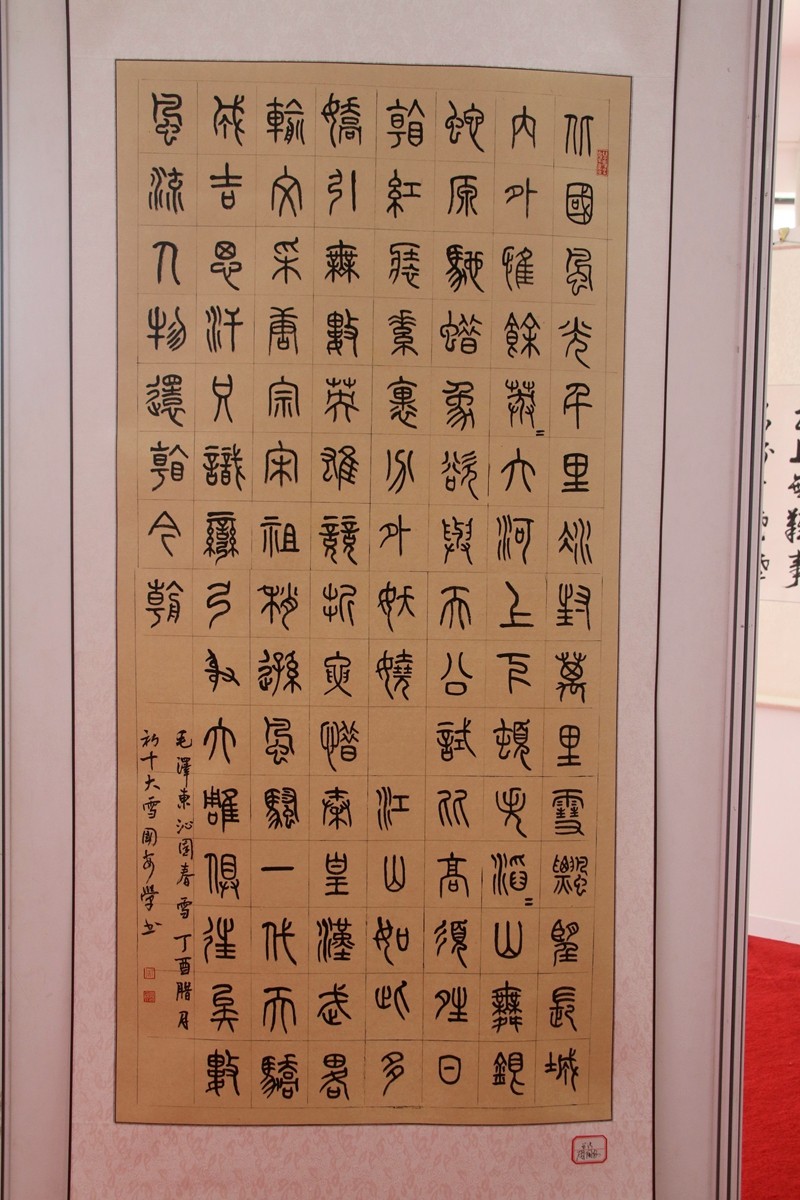 北國風光千里冰封萬里雪飄望長城
內外惟餘莽=大河上下頓失滔=山舞銀
蛇原馳蜡象欲與天公試比高須晴日
看紅裝素裹分外妖嬈 江山如此多
嬌引無數英雄競折腰惜秦皇漢武畧
輸文采唐宗宋祖稍遜風騷一代天驕
成吉思汗只識彎弓射大雕俱往矣數
風流人物還看今朝
毛澤東沁園春雪丁酉腊月
初十大雪國安學书